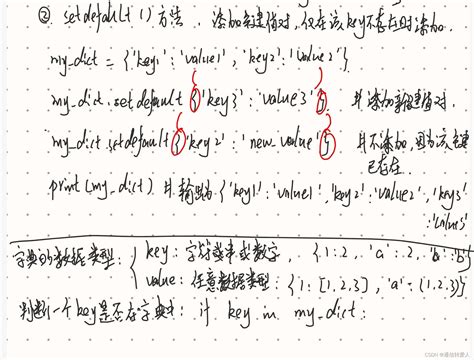 ② setdefault()方法. 添加新键值对,仅在该key不存在时添加.
my_dict = {'key1':'value1', 'key2':'value2'}
my_dict.setdefault{'key3':'value3'} #添加新键值对.
my_dict.setdefault{'key2':'new_value'} #不添加,因为该键
已存在.
print(my_dict) #输出 {'key1':'value1','key2':'value2','key3':
'value3'
字典的数据类型: { key: 字符串或数字, {1:2, 'a':2, 'b':b}
value: 任意数据类型: {1:[1,2,3], 'a':(1,2,3)}
判断一个key是否在字典中: if key in my_dict: